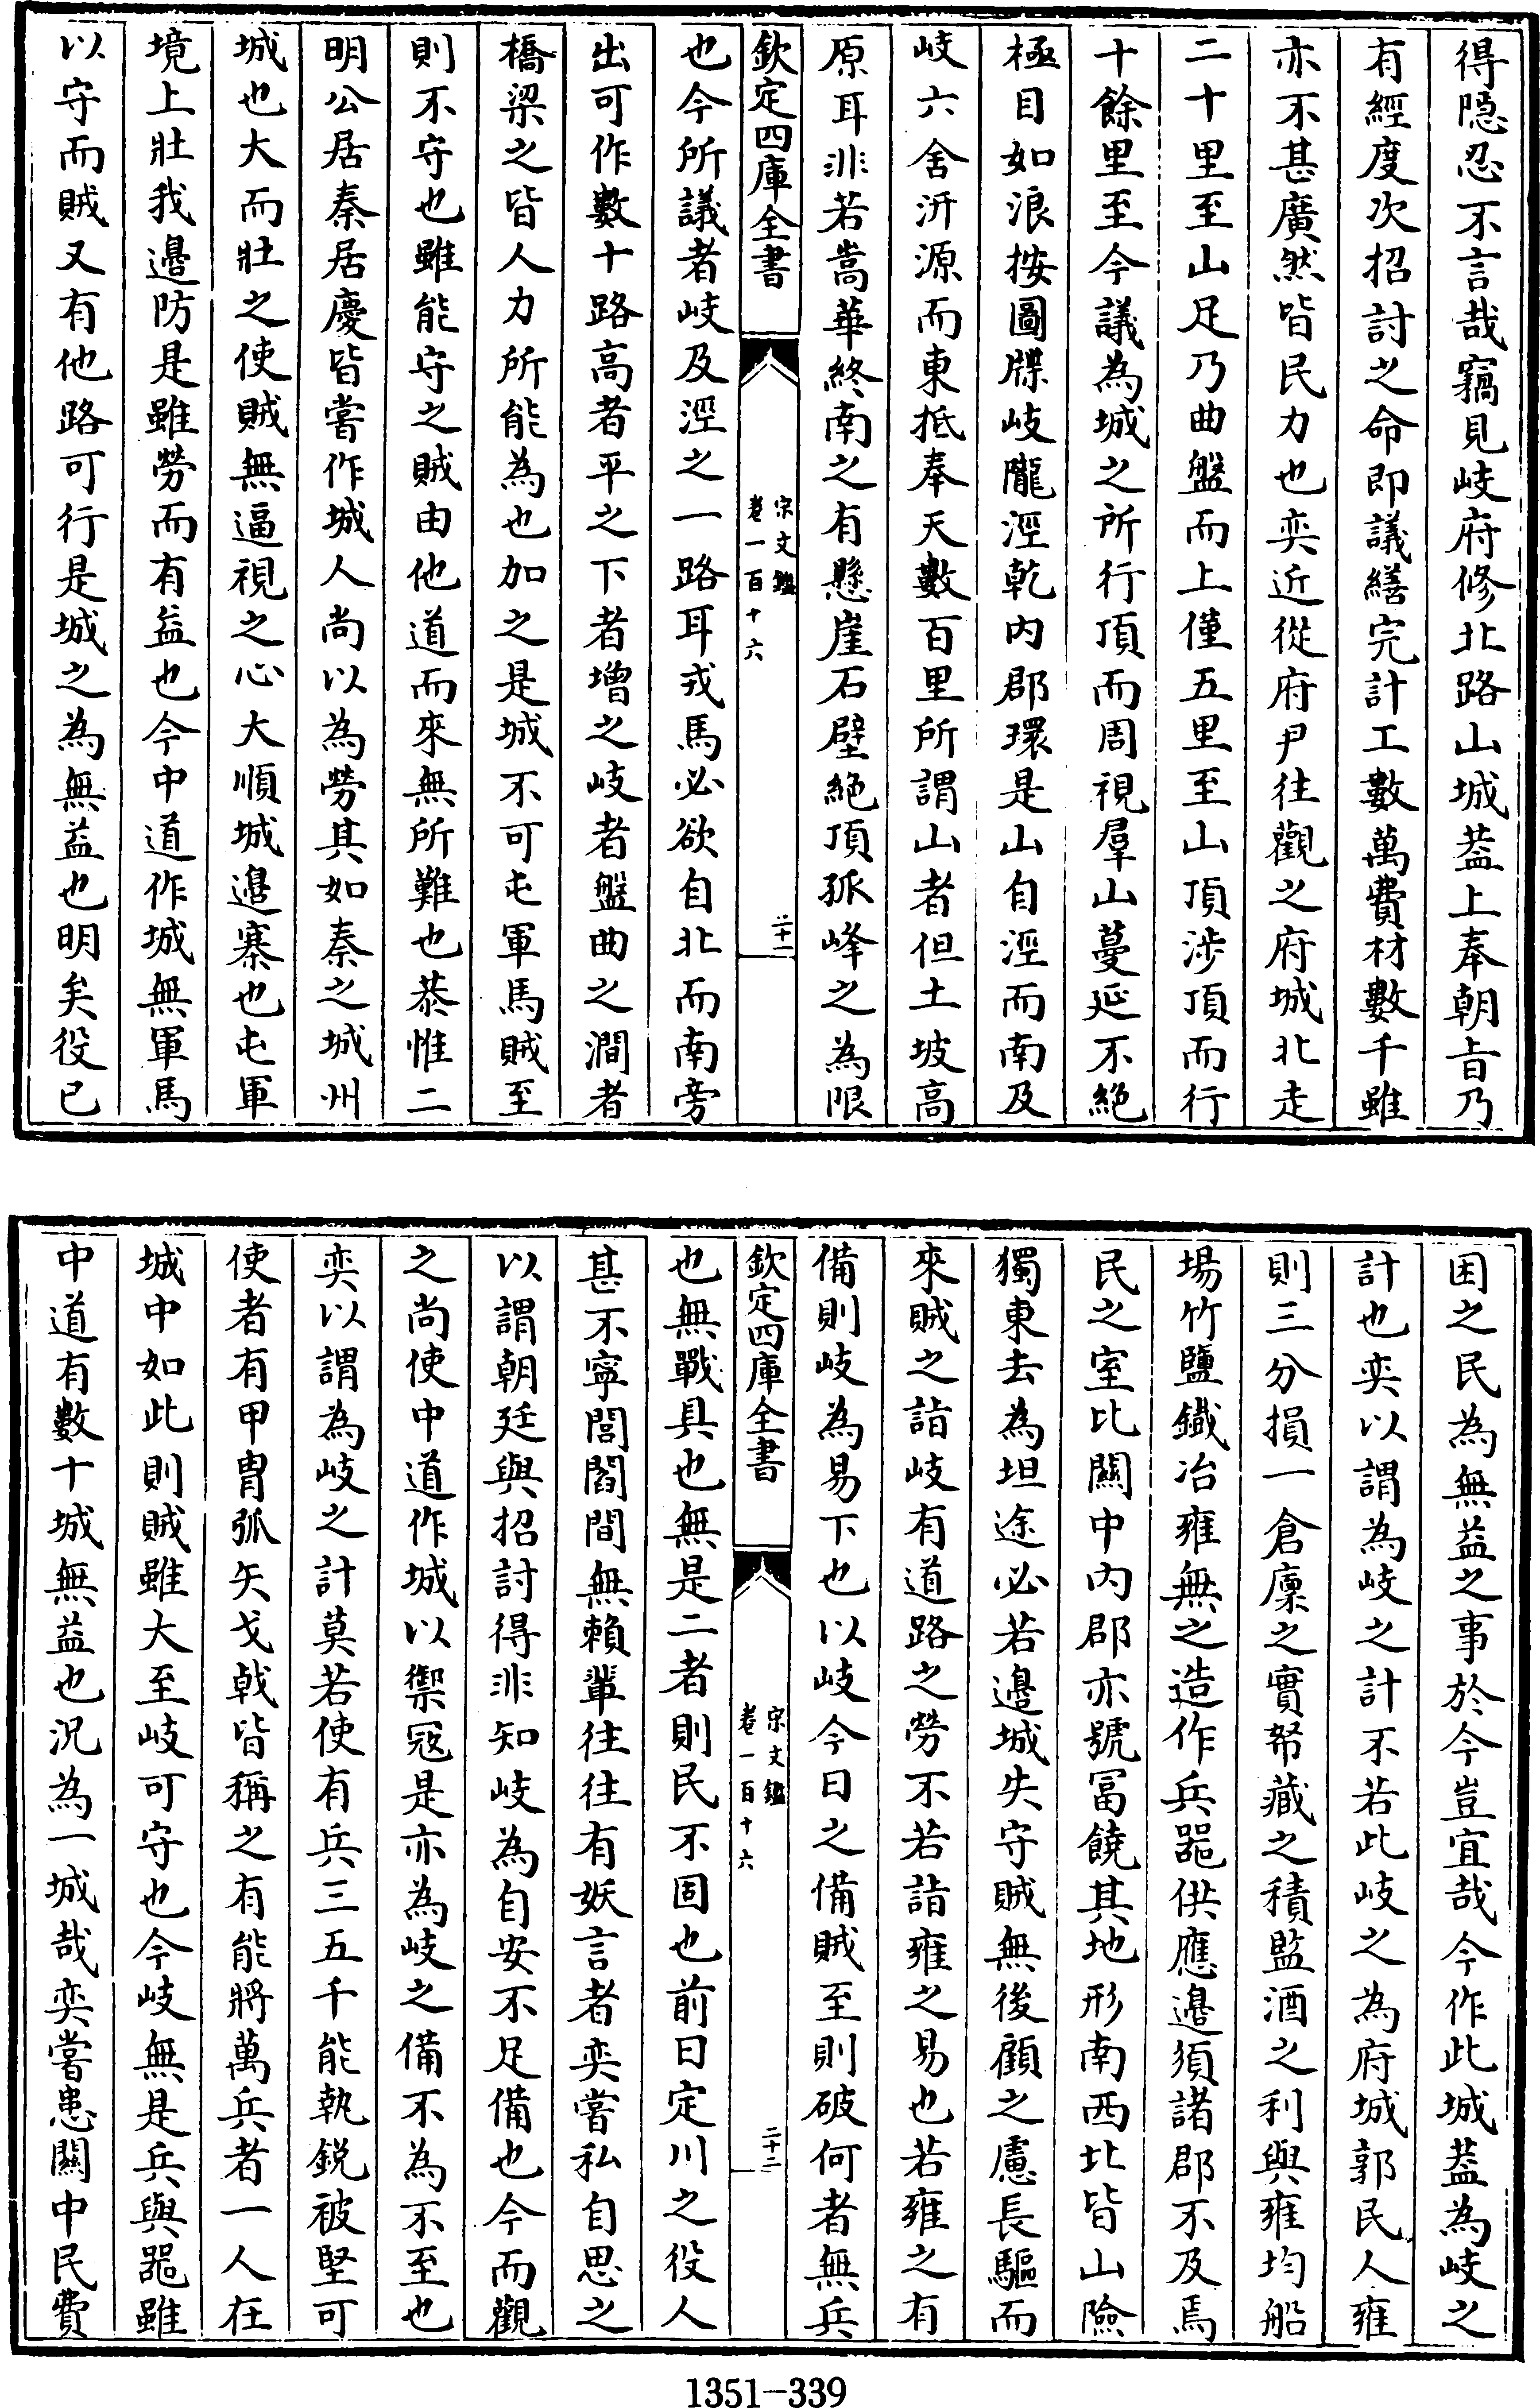 得隱忍不言哉竊見岐府修北路山城葢上奉朝㫖乃
有經度次招討之命即議繕完計工數萬費材數千雖
亦不甚廣然皆民力也奕近從府尹往觀之府城北走
二十里至山足乃曲盤而上僅五里至山頂涉頂而行
十餘里至今議為城之所行頂而周視羣山蔓延不絶
極目如浪按圖牒岐隴涇乾内郡環是山自涇而南及
岐六舍汧源而東抵奉天數百里所謂山者但土坡高
原耳非若嵩華終南之有懸崖石壁絶頂孤峰之為限
欽定四庫全書
宋文鑑
卷一百十六
二十一
也今所議者岐及涇之一路耳戎馬必欲自北而南旁
出可作數十路高者平之下者增之岐者盤曲之澗者
橋梁之皆人力所能為也加之是城不可屯軍馬賊至
則不守也雖能守之賊由他道而來無所難也恭惟二
明公居秦居慶皆嘗作城人尚以為勞其如秦之城州
城也大而壯之使賊無逼視之心大順城邉寨也屯軍
境上壯我邉防是雖勞而有益也今中道作城無軍馬
以守而賊又有他路可行是城之為無益也明矣役已
困之民為無益之事於今豈宜哉今作此城葢為岐之
計也奕以謂為岐之計不若此岐之為府城郭民人雍
則三分損一倉廩之實帑藏之積監酒之利與雍均船
場竹鹽鐵冶雍無之造作兵器供應邉須諸郡不及焉
民之室比闗中内郡亦號冨饒其地形南西北皆山險
獨東去為坦途必若邉城失守賊無後顧之慮長驅而
來賊之詣岐有道路之勞不若詣雍之易也若雍之有
備則岐為易下也以岐今日之備賊至則破何者無兵
欽定四庫全書
宋文鑑
卷一百十六
二十二
也無戰具也無是二者則民不固也前日定川之役人
甚不寧閭閻間無賴輩往往有妖言者奕嘗私自思之
以謂朝廷與招討得非知岐為自安不足備也今而觀
之尚使中道作城以禦冦是亦為岐之備不為不至也
奕以謂為岐之計莫若使有兵三五千能執鋭被堅可
使者有甲冑弧矢戈戟皆稱之有能將萬兵者一人在
城中如此則賊雖大至岐可守也今岐無是兵與器雖
中道有數十城無益也況為一城哉奕嘗患闗中民費
1351-339